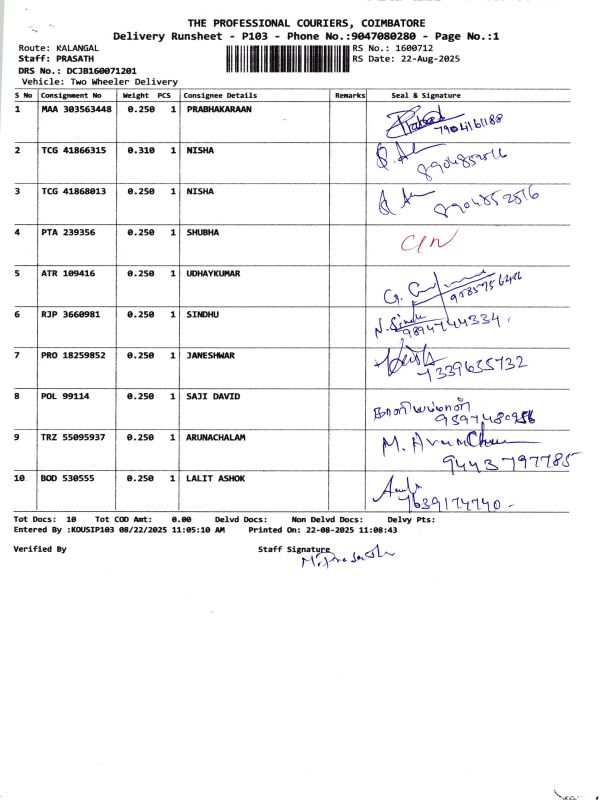 THE PROFESSIONAL COURIERS, COIMBATORE
Delivery Runsheet - P103 - Phone No.:9047080280 - Page No.:1
Route: KALANGAL RS No.: 1600712
Staff: PRASATH RS Date: 22-Aug-2025
DRS No.: DCJB160071201
Vehicle: Two Wheeler Delivery
S No Consignment No Weight PCS Consignee Details Remarks Seal & Signature
1 MAA 303563448 0.250 1 PRABHAKARAAN
7904161188
2 TCG 41866315 0.310 1 NISHA
3 TCG 41868013 0.250 1 NISHA
8904852816
4 PTA 239356 0.250 1 SHUBHA
5 ATR 109416 0.250 1 UDHAYKUMAR
6 RJP 3660981 0.250 1 SINDHU N. Sindhu
9894744334.
7 PRO 18259852 0.250 1 JANESHWAR
7339635732
8 POL 99114 0.250 1 SAJI DAVID
9 TRZ 55095937 0.250 1 ARUNACHALAM M. Arun
9443797785
10 BOD 530555 0.250 1 LALIT ASHOK
7639174740 -
Tot Docs: 10 Tot COD Amt: 0.00 Delvd Docs: Non Delvd Docs: Delvy Pts:
Entered By :KOUSIP103 08/22/2025 11:05:10 AM Printed On: 22-08-2025 11:08:43
Verified By Staff Signature
M. Prasath